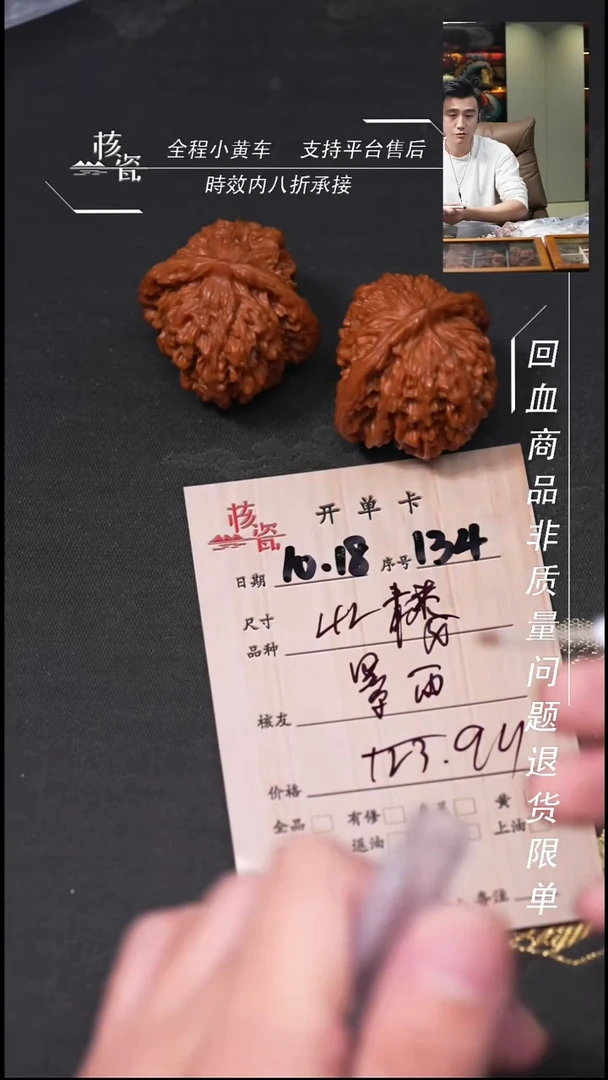 核瓷
全程小黄车 支持平台售后
時效内八折承接
回血商品非质量问题退货限单
核瓷
开单卡
日期 10.18 序号 134
尺寸
品种 42
核友
价格
全品 有修 黄
退油 上油
备注